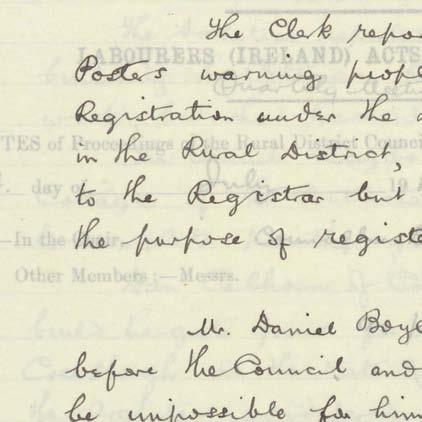 The Clerk repo
LABOURERS (IRELAND) ACTS
Posters warning peopl
Quarterly Meeting
Registration under the a
TES of Proceedings of the Rural District Counci
in the Rural District,
day of July 19
to the Registrar but
the purpose of registe
—In the Chair,
Other Members :—Messrs.
Mr. Daniel Boyl
before the Council and
be impossible for him